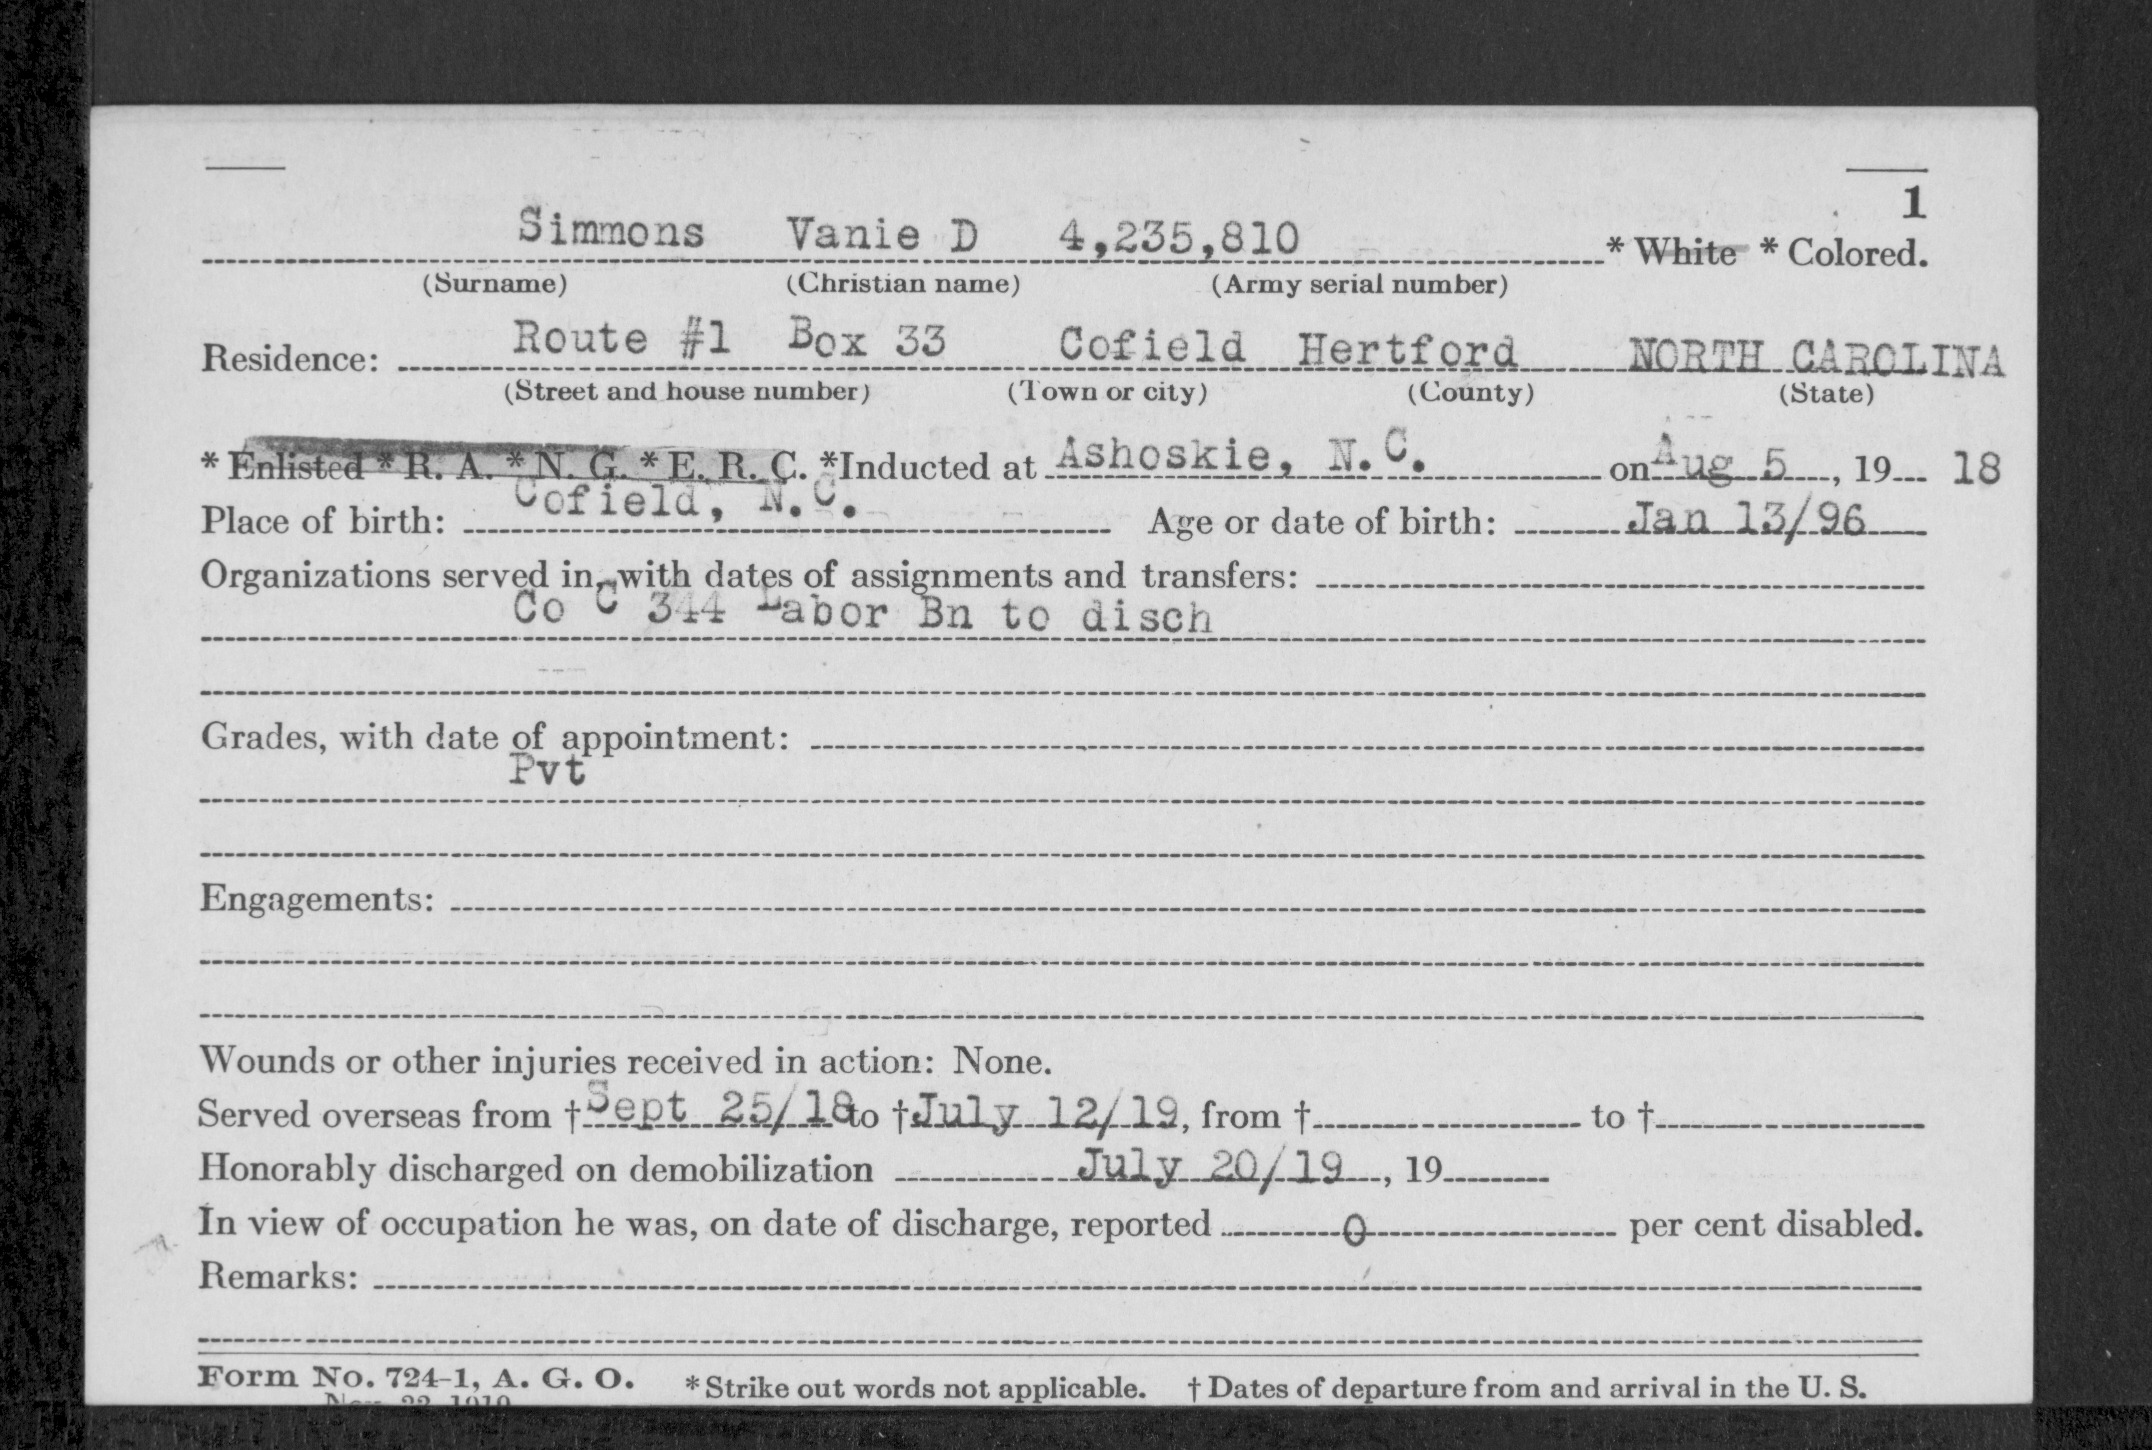 1
Simmons Vanie D 4,235,810 * White * Colored.
(Surname) (Christian name) (Army serial number)
Residence: Route #1 Box 33 Cofield Hertford NORTH CAROLINA
(Street and house number) (Town or city) (County) (State)
* Enlisted * R. A. * N. G. * E. R. C. *Inducted at Ashoskie, N.C. on Aug 5, 19 18
Place of birth: Cofield, N.C. Age or date of birth: Jan 13/96
Organizations served in, with dates of assignments and transfers:
Co C 344 Labor Bn to disch
Grades, with date of appointment:
Pvt
Engagements:
Wounds or other injuries received in action: None.
Served overseas from † Sept 25/18 to † July 12/19, from † to †
Honorably discharged on demobilization July 20/19, 19
In view of occupation he was, on date of discharge, reported 0 per cent disabled.
Remarks:
Form No. 724-1, A. G. O. * Strike out words not applicable. † Dates of departure from and arrival in the U. S.